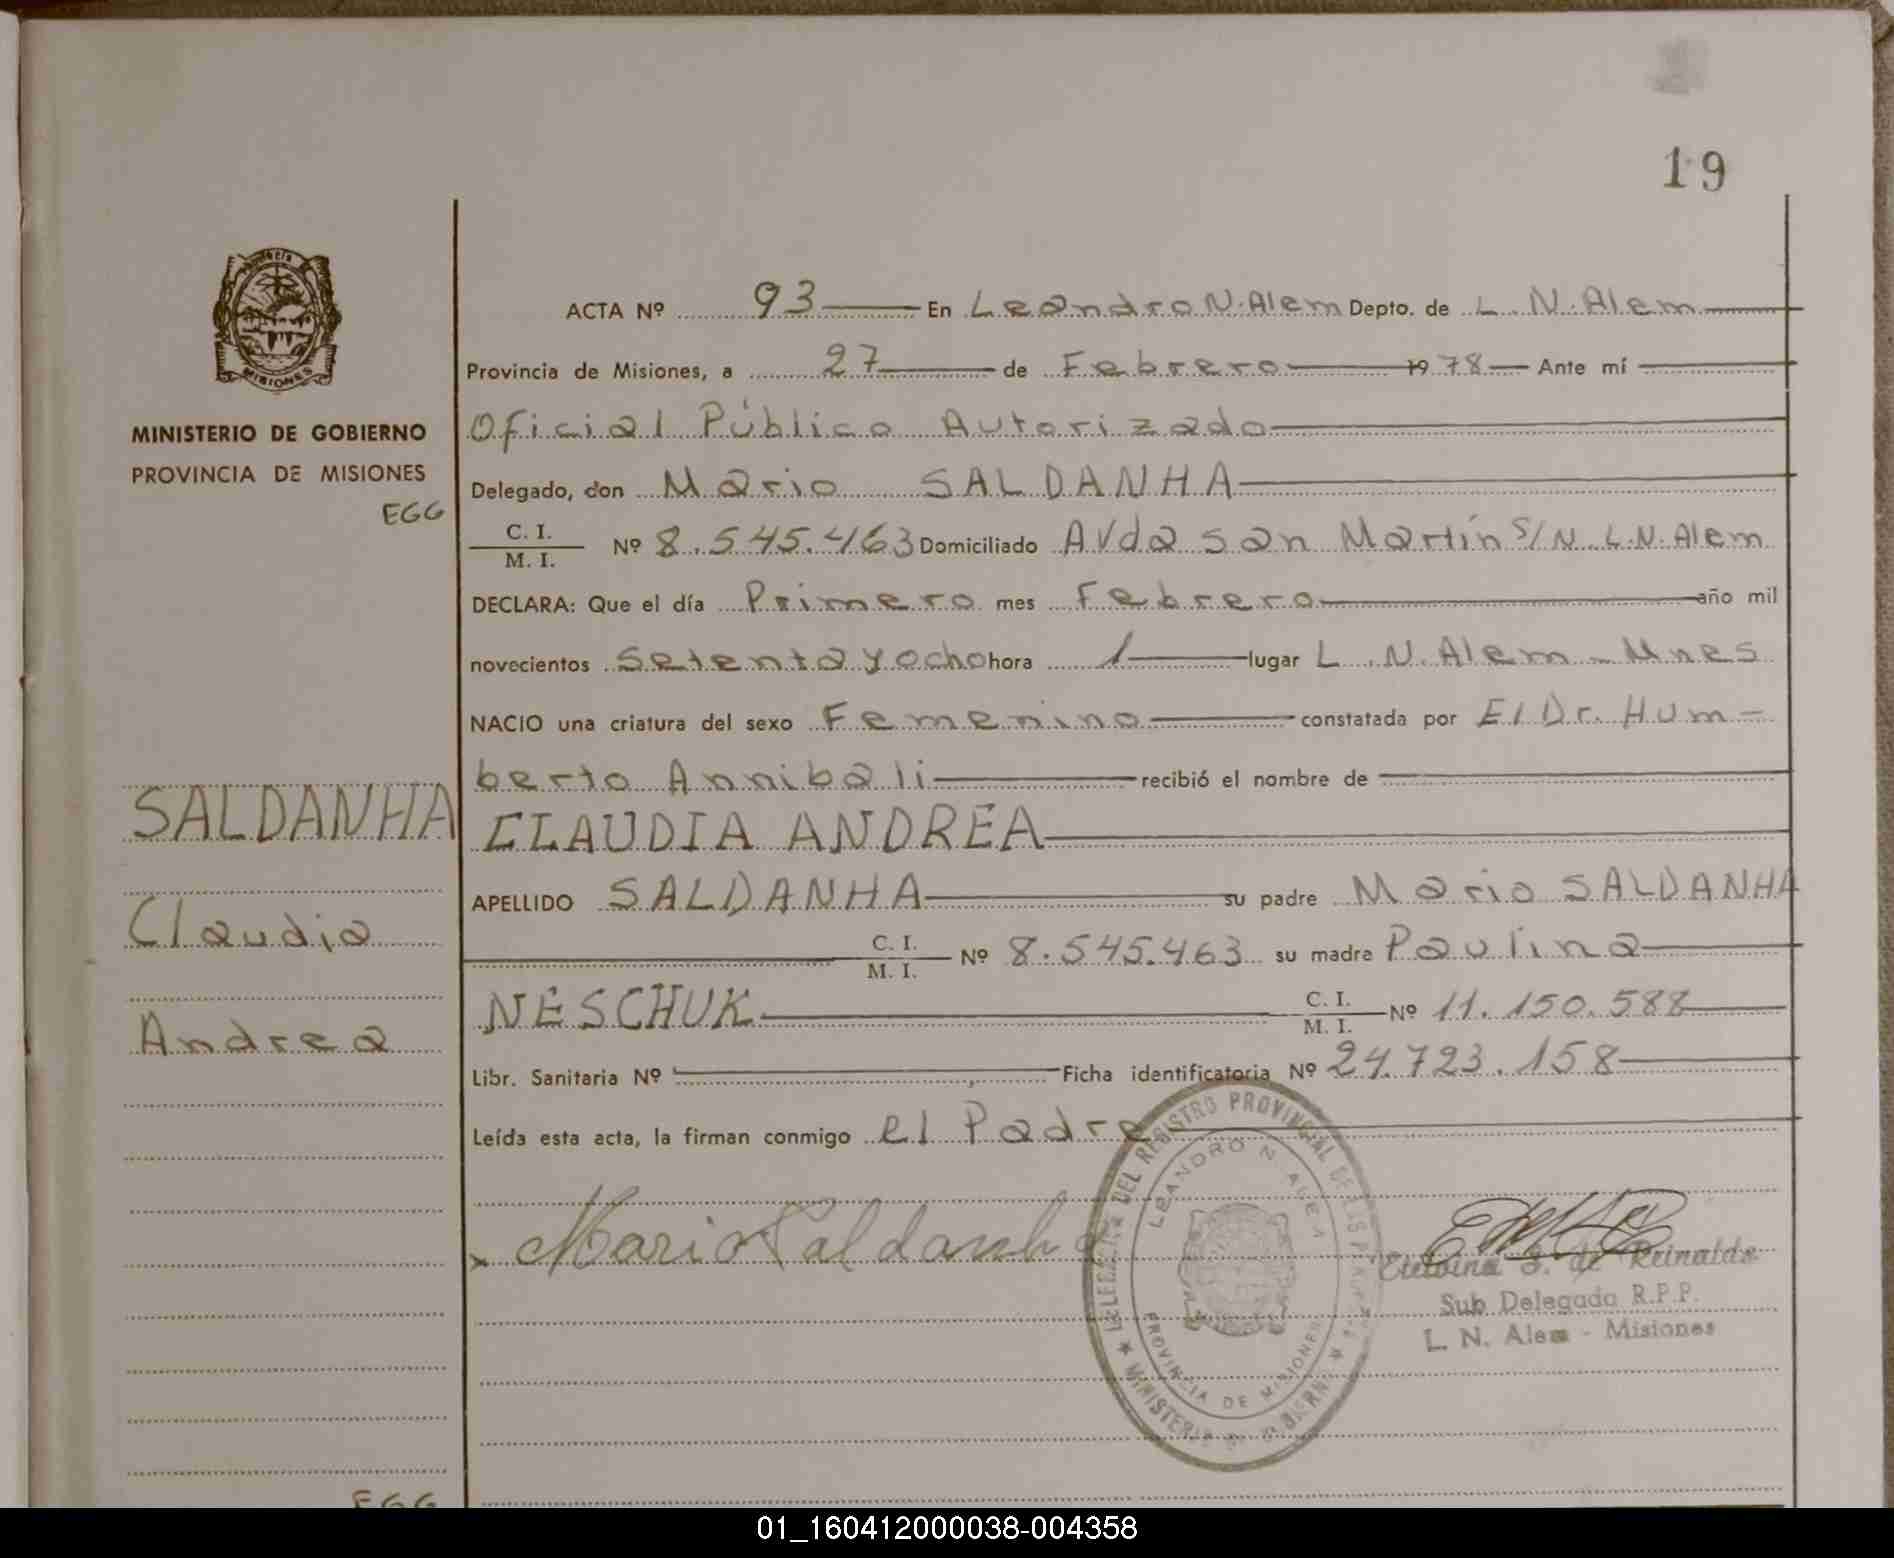 19
Provincia de
MISIONES
MINISTERIO DE GOBIERNO
PROVINCIA DE MISIONES
EGG
SALDANHA
Claudia
Andrea
EGG
ACTA Nº 93 En Leandro N. Alem Depto. de L. N. Alem
Provincia de Misiones, a 27 de Febrero 1978 Ante mí
Oficial Público Autorizado
Delegado, don Mario SALDANHA
C. I.
M. I.
Nº 8.545.463 Domiciliado Avda San Martín S/N L.N. Alem
DECLARA: Que el día Primero mes Febrero año mil
novecientos Setenta y ocho hora 1 lugar L. N. Alem - Mnes
NACIO una criatura del sexo Femenino constatada por El Dr. Hum-
berto Annibali recibió el nombre de
CLAUDIA ANDREA
APELLIDO SALDANHA su padre Mario SALDANHA
C. I.
M. I.
Nº 8.545.463 su madre Paulina
NESCHUK C. I.
M. I.
Nº 11.150.588
Libr. Sanitaria Nº Ficha identificatoria Nº 24.723.158
Leída esta acta, la firman conmigo el Padre
x Mario Saldanha
DEL REGISTRO PROVINCIAL DE LAS
LEANDRO N. ALEM
PROVINCIA DE MISIONES
MINISTERIO DE GOBIERNO
S. de Reinaldo
Sub Delegada R.P.P.
L. N. Alem - Misiones
01_160412000038-004358